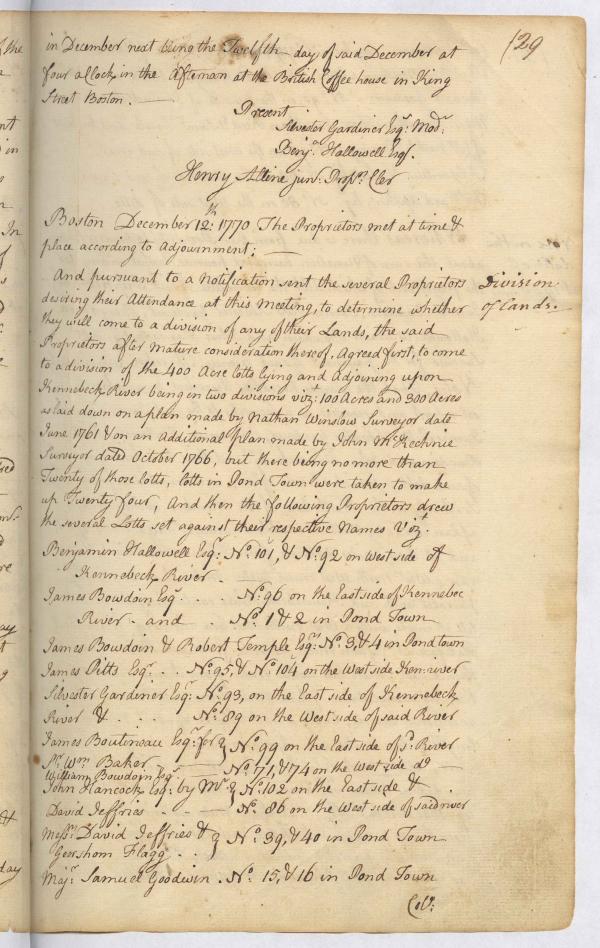 129
in December next being the Twelfth day of said December at
four aClock in the Afternoon at the British Coffee house in King
Street Boston. —
Present
Silvester Gardiner Esqr: Modr:
Benja. Hallowell Esqr.
Henry Alline junr. Proprs. Cler
Boston December 12th: 1770 The Proprietors met at time &
place according to Adjournment; —
And pursuant to a Notification sent the several Proprietors
Division
desiring their Attendance at this Meeting, to determine whether
of Lands. —
they will come to a division of any of their Lands, the said
Proprietors after mature consideration thereof, Agreed first, to come
to a division of the 400 Acre lotts lying and Adjoining upon
Kennebeck River being in two divisions vizt: 100 Acres and 300 Acres
as laid down on a plan made by Nathan Winslow Surveyor date
June 1761 & on an Additional plan made by John McKechnie
Surveyor dated October 1766, but there being no more than
Twenty of those lotts, lotts in Pond Town were taken to make
up Twenty four, And then the following Proprietors drew
the several Lotts set against their respective Names Vizt.
Benjamin Hallowell Esqr: No. 101, & No. 92 on west side of
Kennebeck River. —
James Bowdoin Esqr. . . No. 96 on the East side of Kennebec
River - and . No. 1 & 2 in Pond Town
James Bowdoin & Robert Temple Esqrs: No. 3, & 4 in Pond town
James Pitts Esqr. . . No. 95, & No. 104 on the West side Ken: river
Silvester Gardiner Esqr: No. 93, on the East side of Kennebeck
River & . . . No. 89 on the West side of said River
James Boutineau Esqr: for } No. 99 on the East side of sd. River
Wm. Baker — } No. 71, & 74 on the West side do —
William Bowdoin Esqr.
John Hancock Esq: by Mr. } No. 102 on the East side &
David Jeffries . . — No. 86 on the West side of said river
Messrs. David Jeffries & } No. 39, & 40 in Pond Town
Gershom Flagg . . }
Majr. Samuel Goodwin . No. 15, & 16 in Pond Town
Colo: